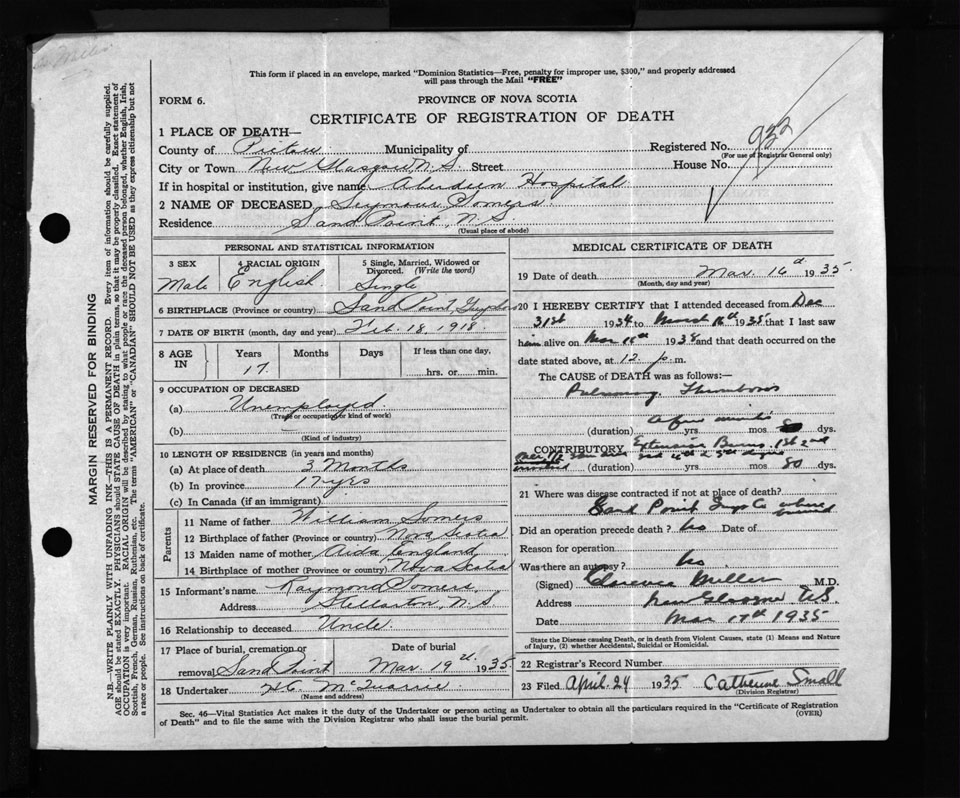 This form if placed in an envelope, marked "Dominion Statistics—Free, penalty for improper use, $300," and properly addressed
will pass through the Mail "FREE"
FORM 6.
PROVINCE OF NOVA SCOTIA
CERTIFICATE OF REGISTRATION OF DEATH
932
1 PLACE OF DEATH—
County of Pictou Municipality of Registered No.
(For use of Registrar General only)
City or Town New Glasgow N.S. Street House No.
If in hospital or institution, give name Aberdeen Hospital
2 NAME OF DECEASED Seymour Somers
Residence Sand Point, N.S.
(Usual place of abode)
MARGIN RESERVED FOR BINDING
N.B.—WRITE PLAINLY WITH UNFADING INK—THIS IS A PERMANENT RECORD. Every item of information should be carefully supplied.
AGE should be stated EXACTLY. PHYSICIANS should STATE CAUSE OF DEATH in plain terms, so that it may be properly classified. Exact statement of
OCCUPATION is very important. RACIAL ORIGIN will be described by stating to what people or race the deceased person belonged, whether English, Irish,
Scottish, French, German, Russian, Ruthenian, etc. The terms "AMERICAN" or "CANADIAN" SHOULD NOT BE USED as they express citizenship but not
a race or people. See instructions on back of certificate.
PERSONAL AND STATISTICAL INFORMATION
3 SEX
Male
4 RACIAL ORIGIN
English
5 Single, Married, Widowed or
Divorced. (Write the word)
Single
6 BIRTHPLACE (Province or country) Sand Point, Guysboro
7 DATE OF BIRTH (month, day and year) Feb. 18, 1918
8 AGE IN
Years Months Days If less than one day,
17 hrs. or min.
9 OCCUPATION OF DECEASED
(a) Unemployed
(Trade or occupation or kind of work)
(b)
(Kind of industry)
10 LENGTH OF RESIDENCE (in years and months)
(a) At place of death 3 Months
(b) In province 17 yrs
(c) In Canada (if an immigrant)
Parents
11 Name of father William Somers
12 Birthplace of father (Province or country) Nova Scotia
13 Maiden name of mother Aida England
14 Birthplace of mother (Province or country) Nova Scotia
15 Informant's name Raymond Somers
Address Stellarton, N.S.
16 Relationship to deceased Uncle
17 Place of burial, cremation or
removal Sand Point Mar. 19th 1935
18 Undertaker H.C. McQuarrie
(Name and address)
MEDICAL CERTIFICATE OF DEATH
19 Date of death Mar. 16th 1935
(Month, day and year)
20 I HEREBY CERTIFY that I attended deceased from Dec
31st 1934 to March 16th 1935 that I last saw
him alive on Mar 16th 1935 and that death occurred on the
date stated above, at 12 p.m.
The CAUSE of DEATH was as follows:—
Pulmonary Thrombosis
a few min's
(duration) yrs mos dys.
CONTRIBUTORY Extensive Burns 1st 2nd
3rd 4th & 5th degree
(duration) yrs. mos 80 dys.
21 Where was disease contracted if not at place of death?
Sand Point Guys Co where
burned
Did an operation precede death? No Date of
Reason for operation
Was there an autopsy? No
(Signed) Clarence Miller M.D.
Address New Glasgow N.S.
Date Mar 19th 1935
State the Disease causing Death, or in death from Violent Causes, state (1) Means and Nature
of Injury, (2) whether Accidental, Suicidal or Homicidal.
22 Registrar's Record Number
23 Filed April 24 1935 Catherine Small
(Division Registrar)
Sec. 46—Vital Statistics Act makes it the duty of the Undertaker or person acting as Undertaker to obtain all the particulars required in the "Certificate of Registration
of Death" and to file the same with the Division Registrar who shall issue the burial permit.
(OVER)